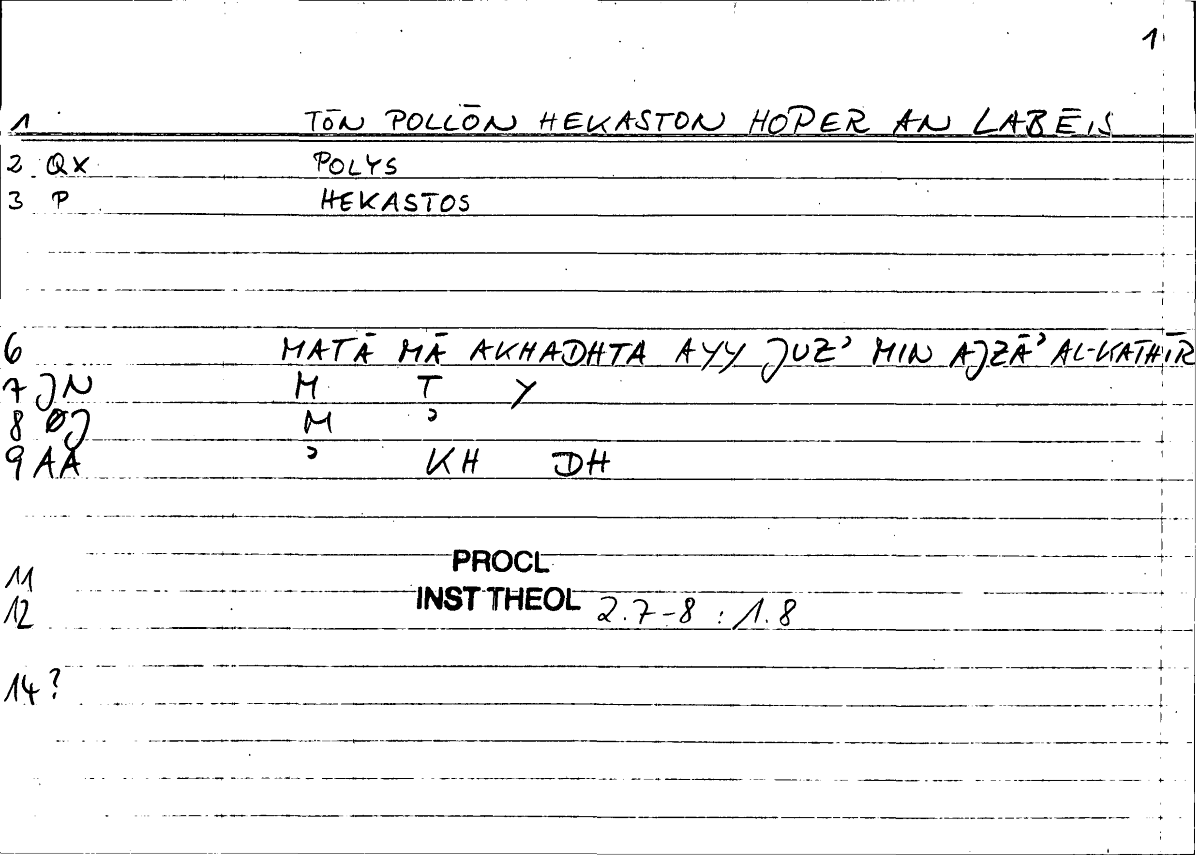 1
1 TŌN POLLŌN HEKASTON HOPER AN LABĒIS
2 QX POLYS
3 P HEKASTOS
6 MATĀ MĀ AKHADHTA AYY JUZʾ MIN AJZĀʾ AL-KATHĪR
7 JN M T Y
8 ØJ M ʾ
9 AA ʾ KH DH
11 PROCL
12 INST THEOL 2.7-8 : 1.8
14 ?